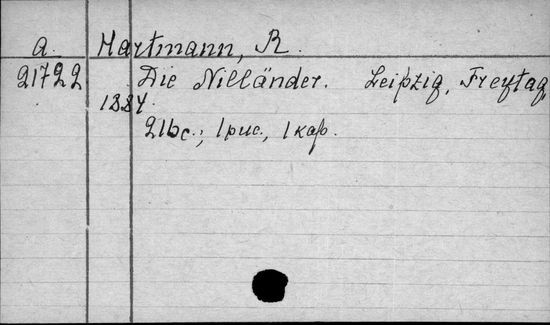 a. Hartmann, R.
21722 Die Nilländer. Leipzig, Freytag,
1884.
216 с.; 1 рис., 1 кар.